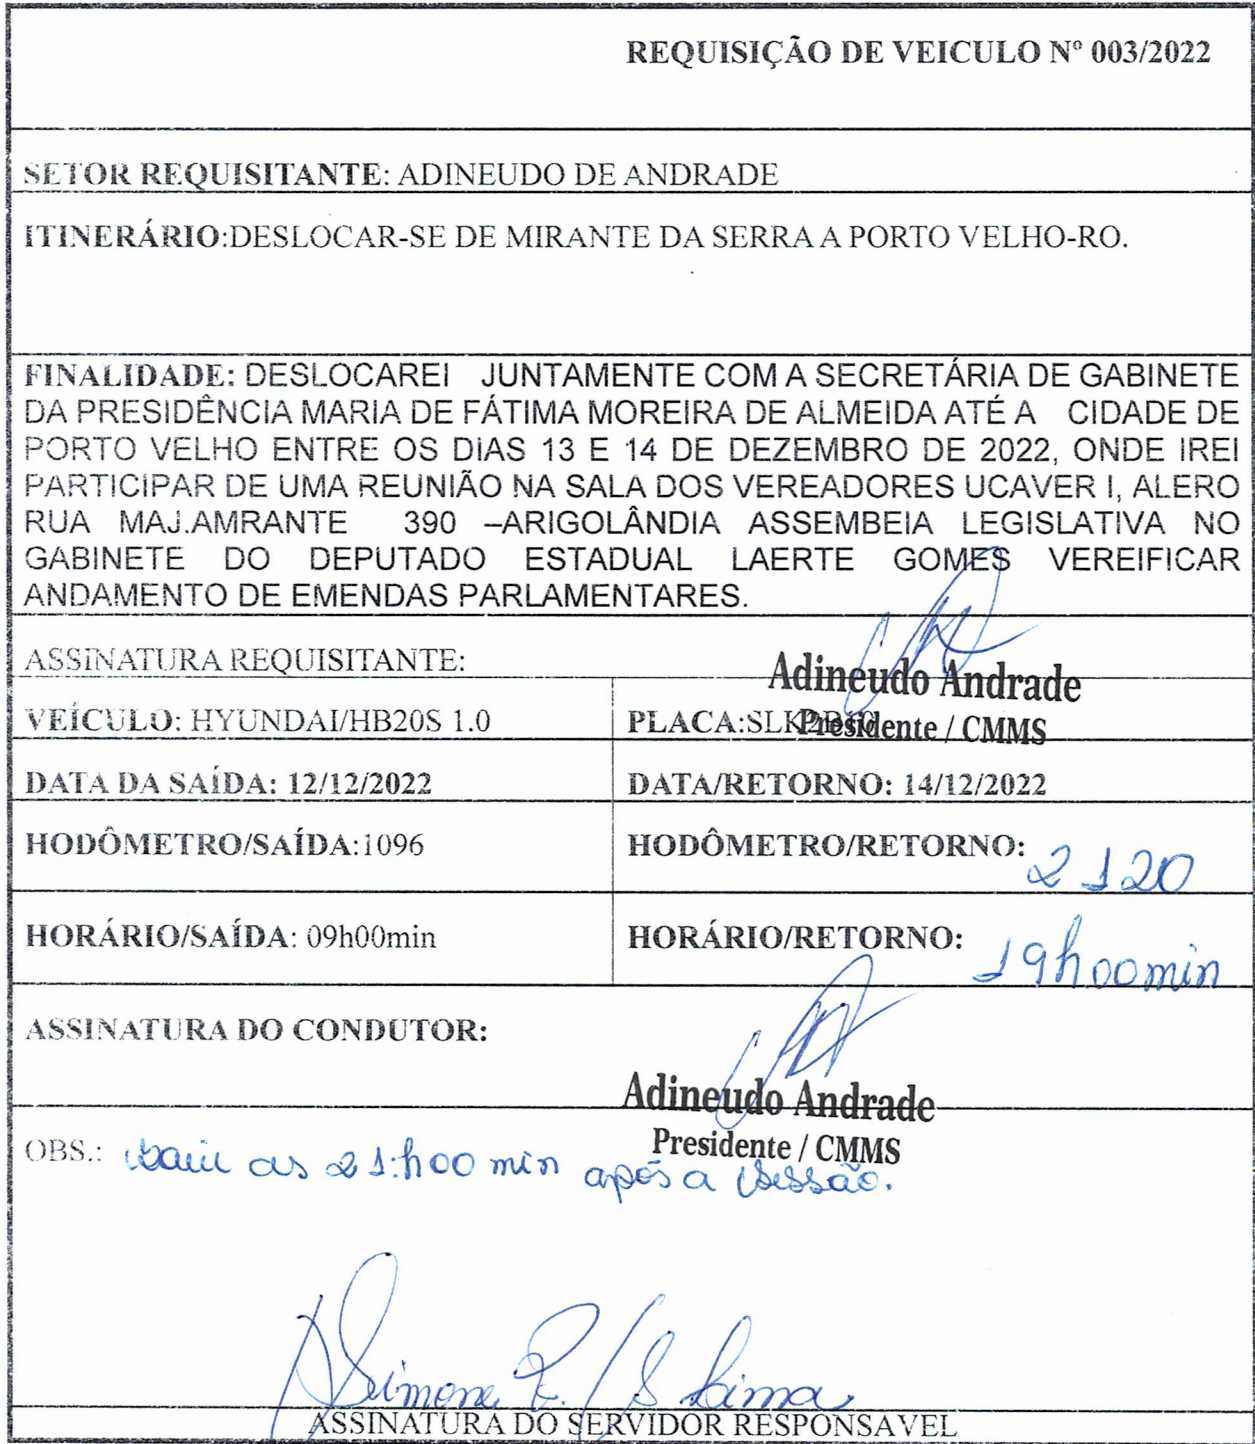 REQUISIÇÃO DE VEICULO Nº 003/2022
SETOR REQUISITANTE: ADINEUDO DE ANDRADE
ITINERÁRIO:DESLOCAR-SE DE MIRANTE DA SERRA A PORTO VELHO-RO.
FINALIDADE: DESLOCAREI JUNTAMENTE COM A SECRETÁRIA DE GABINETE
DA PRESIDÊNCIA MARIA DE FÁTIMA MOREIRA DE ALMEIDA ATÉ A CIDADE DE
PORTO VELHO ENTRE OS DIAS 13 E 14 DE DEZEMBRO DE 2022, ONDE IREI
PARTICIPAR DE UMA REUNIÃO NA SALA DOS VEREADORES UCAVER I, ALERO
RUA MAJ.AMRANTE 390 –ARIGOLÂNDIA ASSEMBEIA LEGISLATIVA NO
GABINETE DO DEPUTADO ESTADUAL LAERTE GOMES VEREIFICAR
ANDAMENTO DE EMENDAS PARLAMENTARES.
ASSINATURA REQUISITANTE:
Adineudo Andrade
Presidente / CMMS
VEÍCULO: HYUNDAI/HB20S 1.0 PLACA:
DATA DA SAÍDA: 12/12/2022 DATA/RETORNO: 14/12/2022
HODÔMETRO/SAÍDA:1096 HODÔMETRO/RETORNO: 2120
HORÁRIO/SAÍDA: 09h00min HORÁRIO/RETORNO: 19h00min
ASSINATURA DO CONDUTOR:
Adineudo Andrade
Presidente / CMMS
OBS.: Saiu as 21:h00 min após a Sessão.
Simone P. S Lima
ASSINATURA DO SERVIDOR RESPONSAVEL